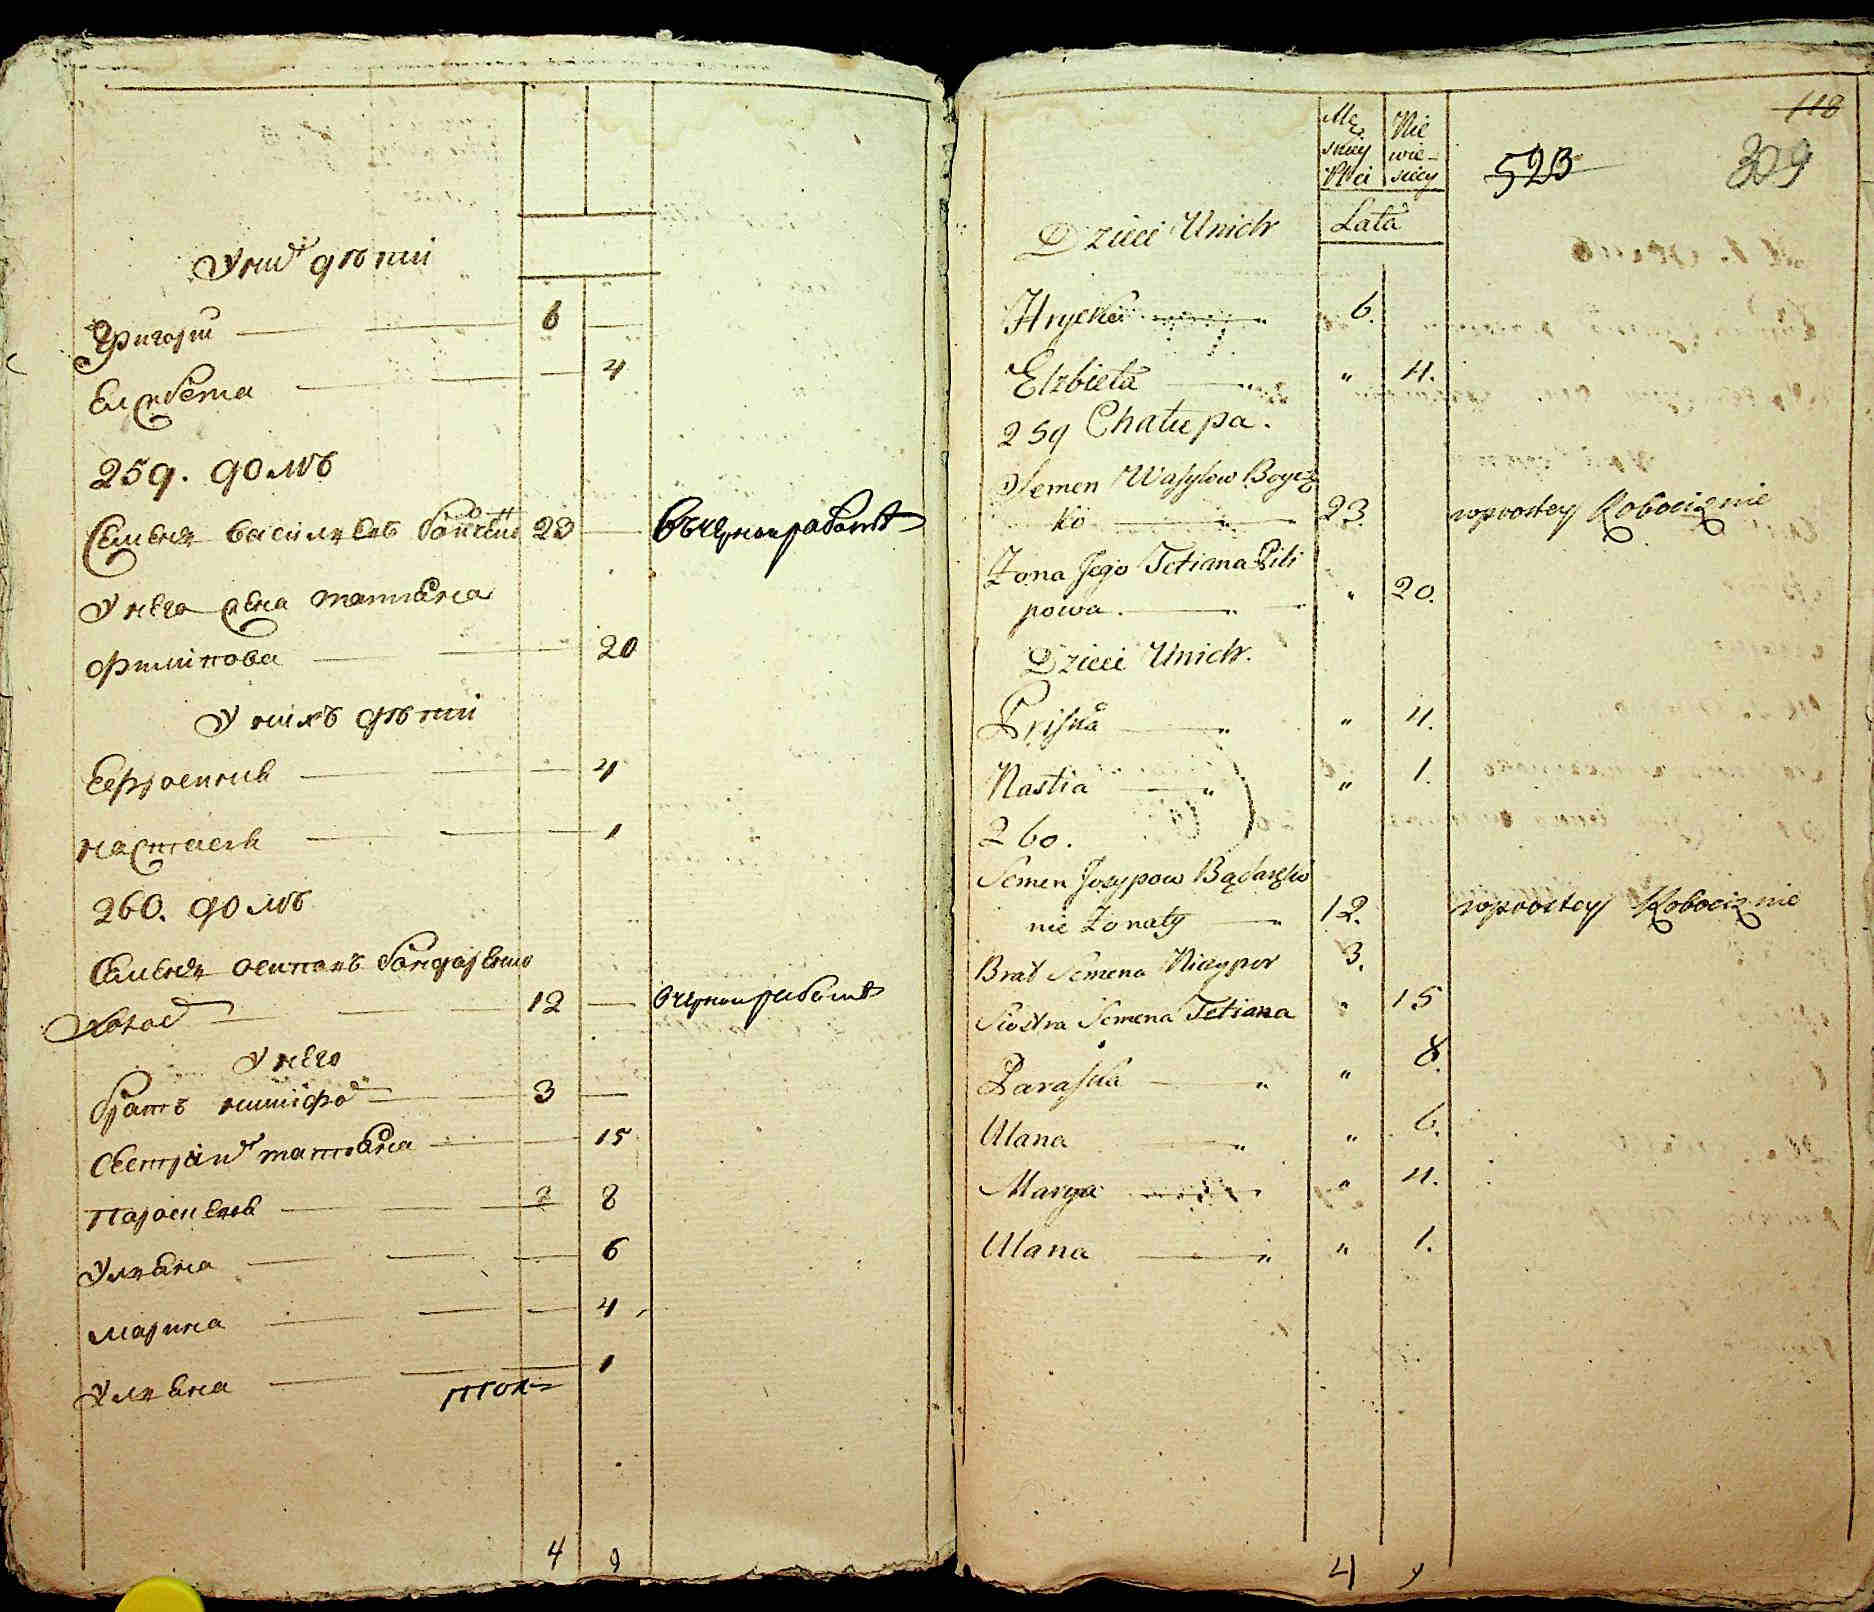 У них дѣти
Григорій 6
Елисвета 4
259. домъ
Семенъ Василиевъ Бойчеко 23 Въ черной работѣ
У него жена татиана
филипова 20
У нихъ дѣти
Ефросиния 4
настасия 1
260. домъ
Семенъ осиповъ бондаренко
холос 12 в черной работѣ
У него
братъ никифо 3
Сестри татиана 15
Параскева 8
Улиана 6
марина 4
Улиана 1
4 9
118
523
309
Męskiey Płci
Niewieściey
Lata
Dzieci Unich
Hrycko 6.
Elzbieta " 4.
259 Chałupa.
Semen Wasylow Boycz
ko 23. w prostey Robociznie
Zona Jego Tetiana Pili
powa. " 20.
Dzieci Unich.
Priska " 4.
Nastia " 1.
260.
Semen Jozypow Bądaręko
nie Zonaty 12. w prostey Robociznie
Brat Semena Niczypor 3.
Siostra Semena Tetiana " 15
Paraska " 8.
Ulana " 6.
Marya " 4.
Ulana " 1.
4 9